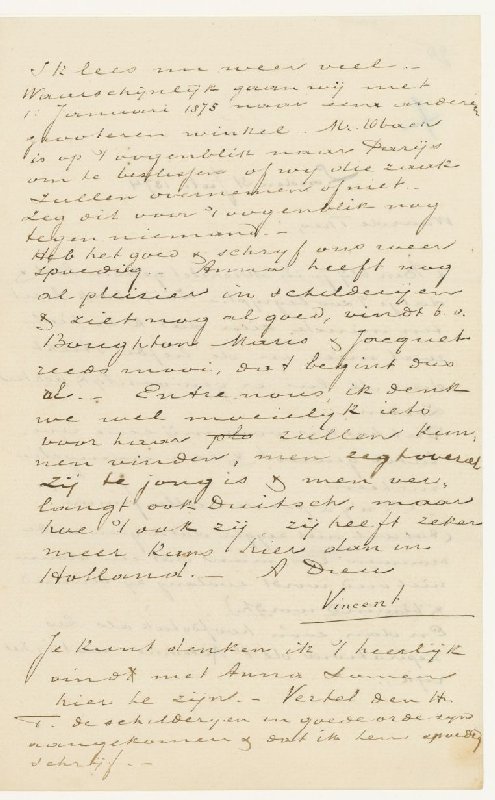 Ik lees nu weer veel. –
Waarschijnlijk gaan wij met
1 Januari 1875 naar eene anderen
grooteren winkel. Mr. Obach
is op 't oogenblik naar Parijs
om te beslissen of wij die zaak
zullen overnemen of niet. –
Zeg dit voor 't oogenblik nog
tegen niemand. –
Heb het goed & schrijf ons weer
spoedig. Anna heeft nog
al pleisier in schilderijen
& ziet nog al goed, vindt b.v.
Boughton Maris & Jacquet
reeds mooi, dat begint dus
al. – Entre nous, ik denk
we wel moeielijk iets
voor haar zullen kun-
nen vinden, men zegt overal
zij te jong is & men ver-
langt ook Duitsch, maar
hoe 't ook zij zij heeft zeker
meer kans hier dan in
Holland. – A Dieu
Vincent
Je kunt denken ik 't heerlijk
vindt met Anna samen
hier te zijn. – Vertel den H.
T. de schilderijen in goede orde zijn
aangekomen & dat ik hem spoedig
schrijf. –